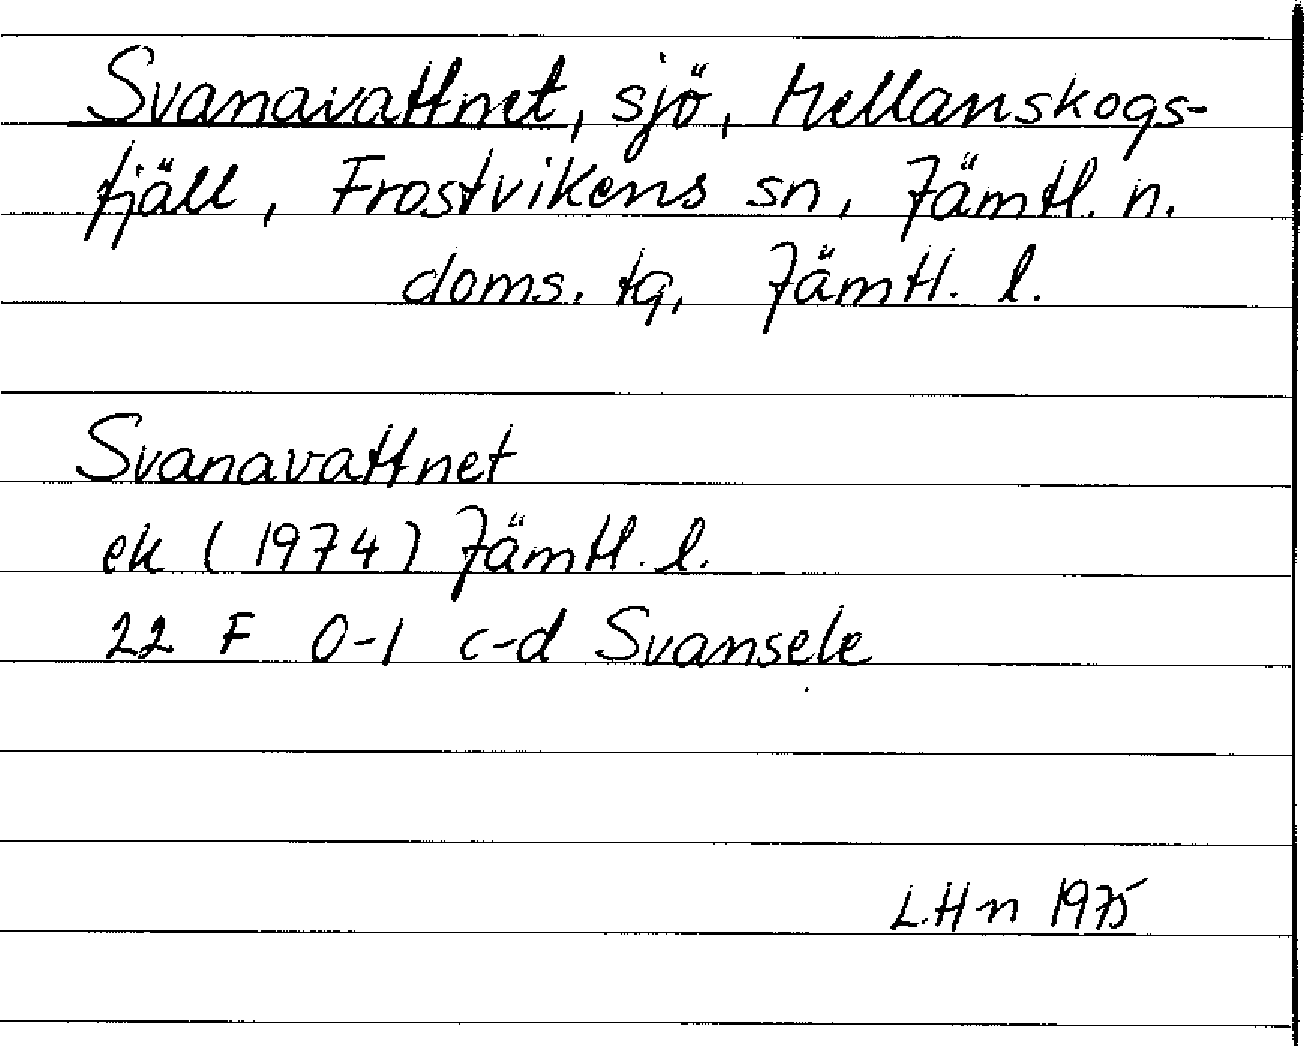 Svanavattnet, sjö, Mellanskogs-
fjäll, Frostvikens sn, Jämtl. n.
doms. tg, Jämtl. l.
Svanavattnet
ek (1974) Jämtl. l.
22 F 0-1 c-d Svansele
L.Hn 1975